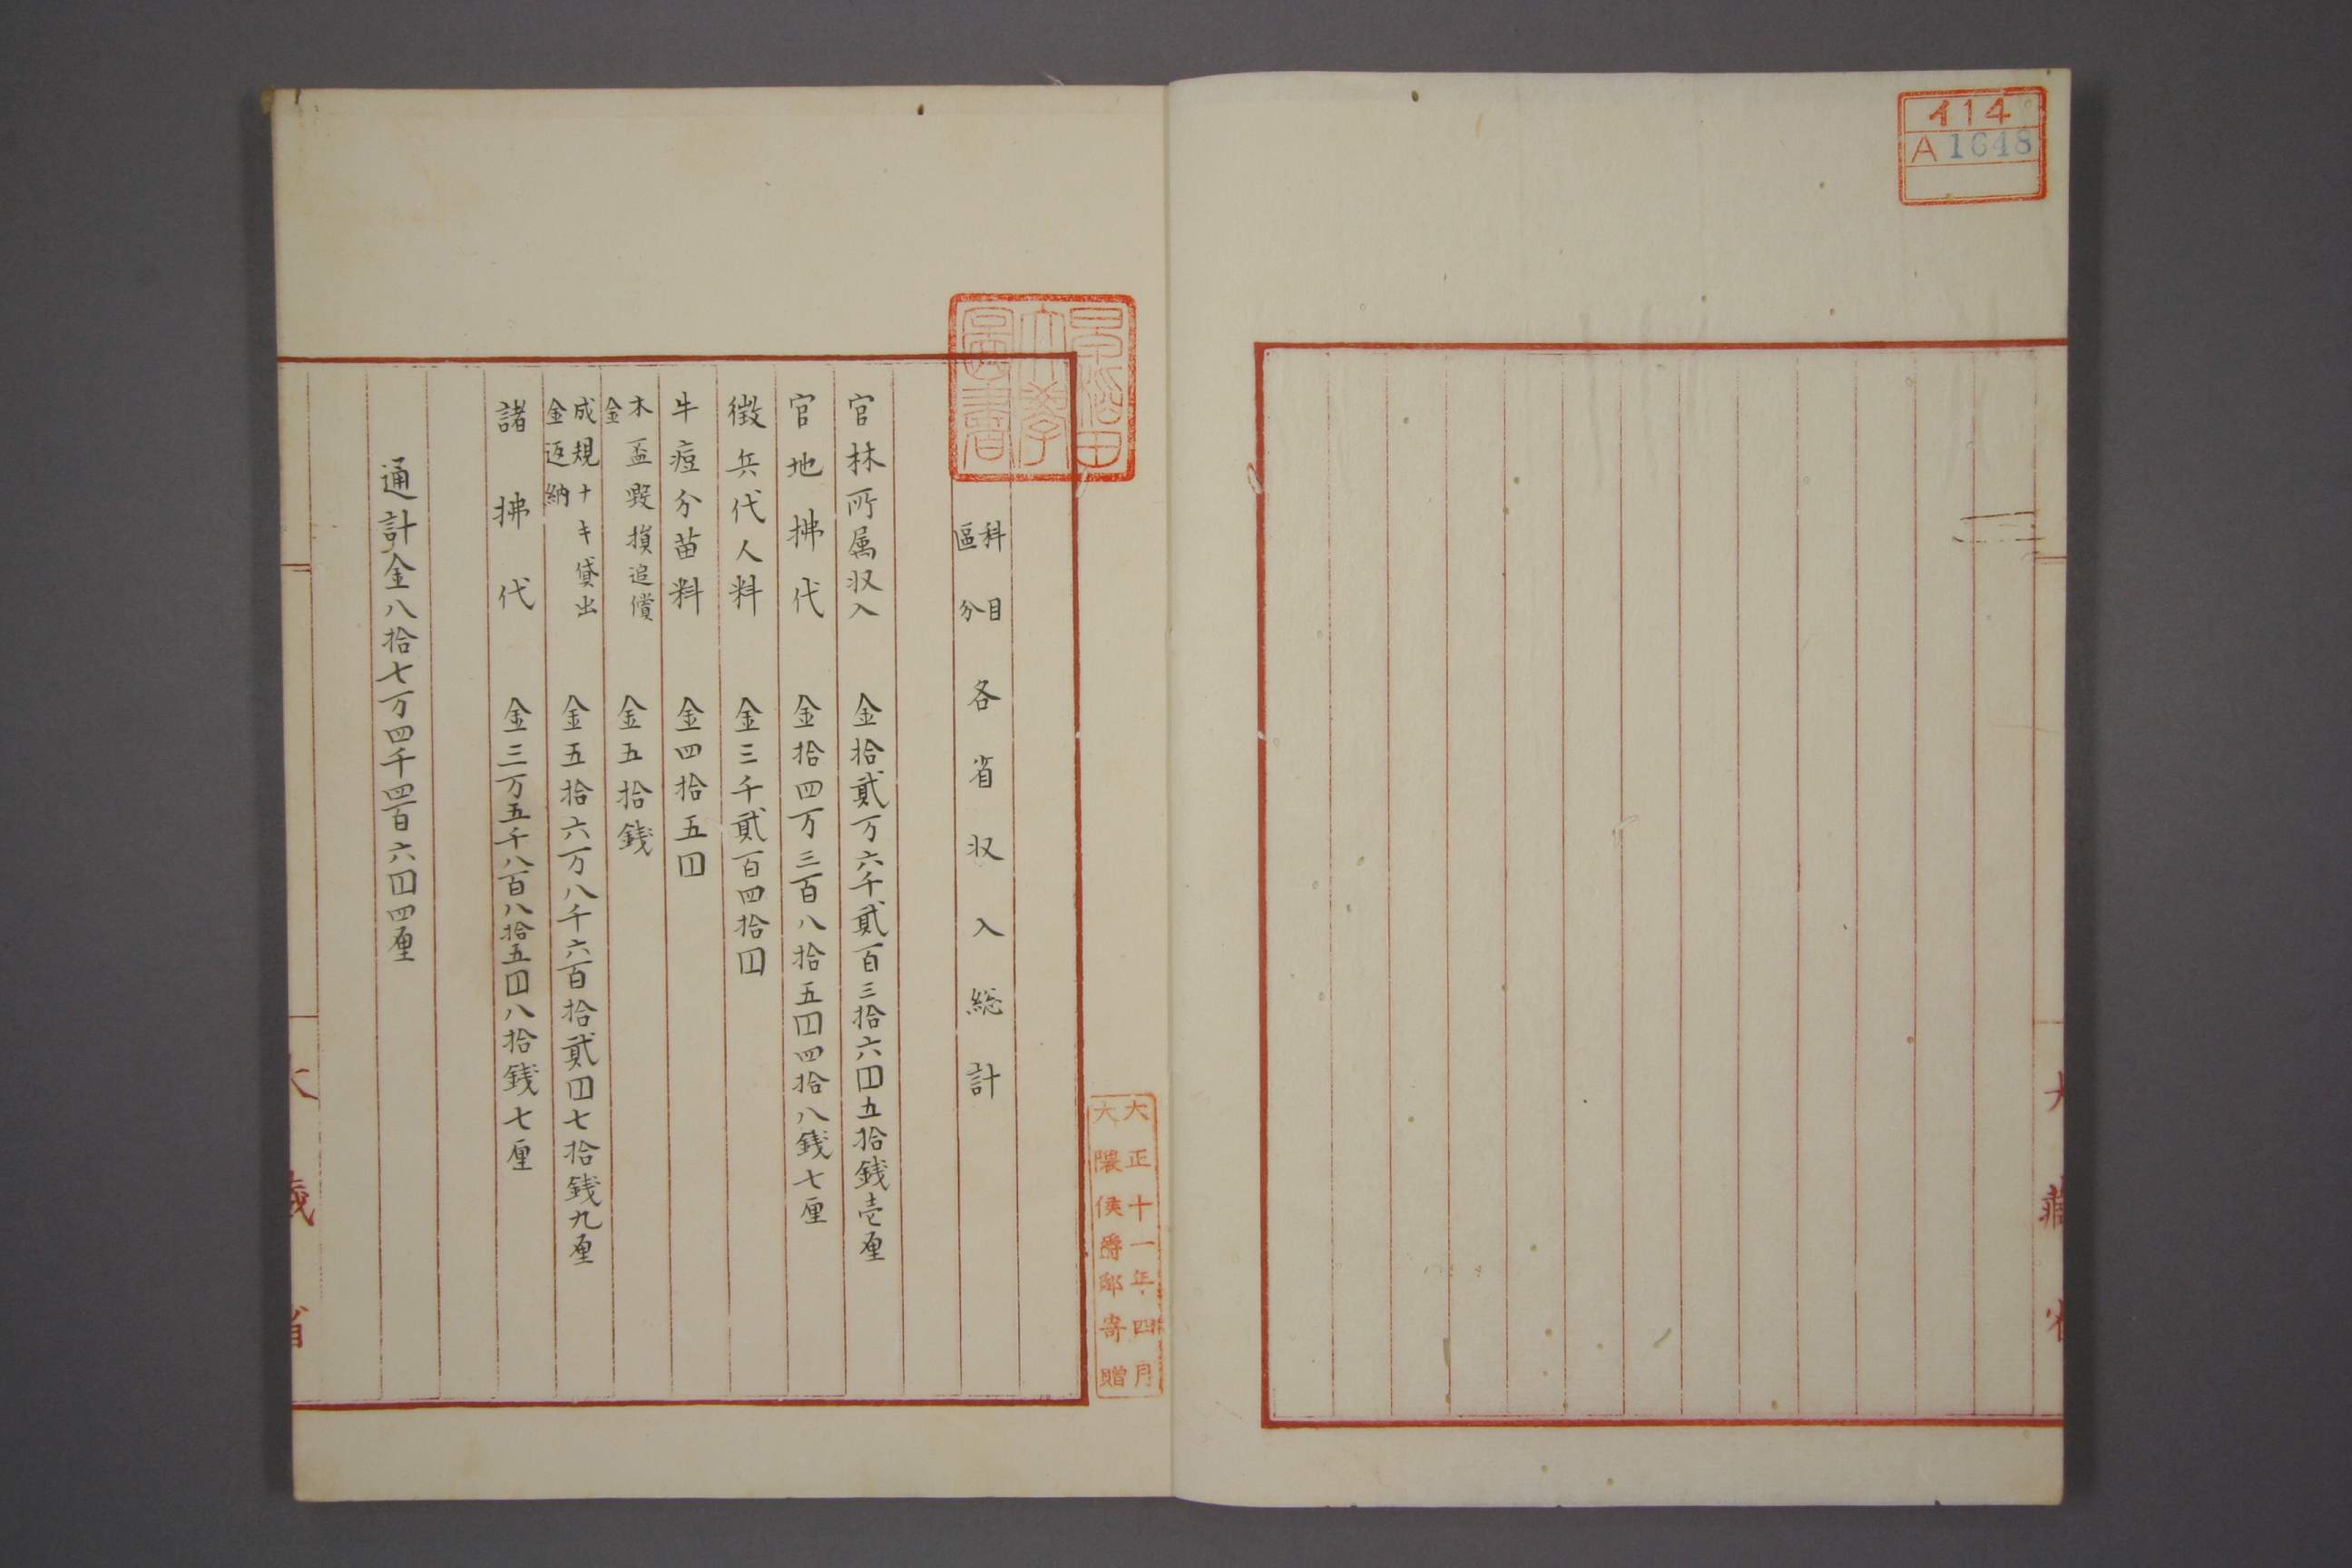 イ14
A 1648
大藏省
早稲田
大學
圖書
大正十一年四月
大隈侯爵邸寄贈
科目
區分
各省収入総計
官林所属収入 金拾貳万六千貳百三拾六円五拾銭壱厘
官地拂代 金拾四万三百八拾五円四拾八銭七厘
徴兵代人料 金三千貳百四拾円
牛痘分苗料 金四拾五円
木盃毀損追償
金
金五拾銭
成規ナキ貸出
金返納
金五拾六万八千六百拾貳円七拾銭九厘
諸拂代 金三万五千八百八拾五円八拾銭七厘
通計金八拾七万四千四百六円四厘
大蔵省